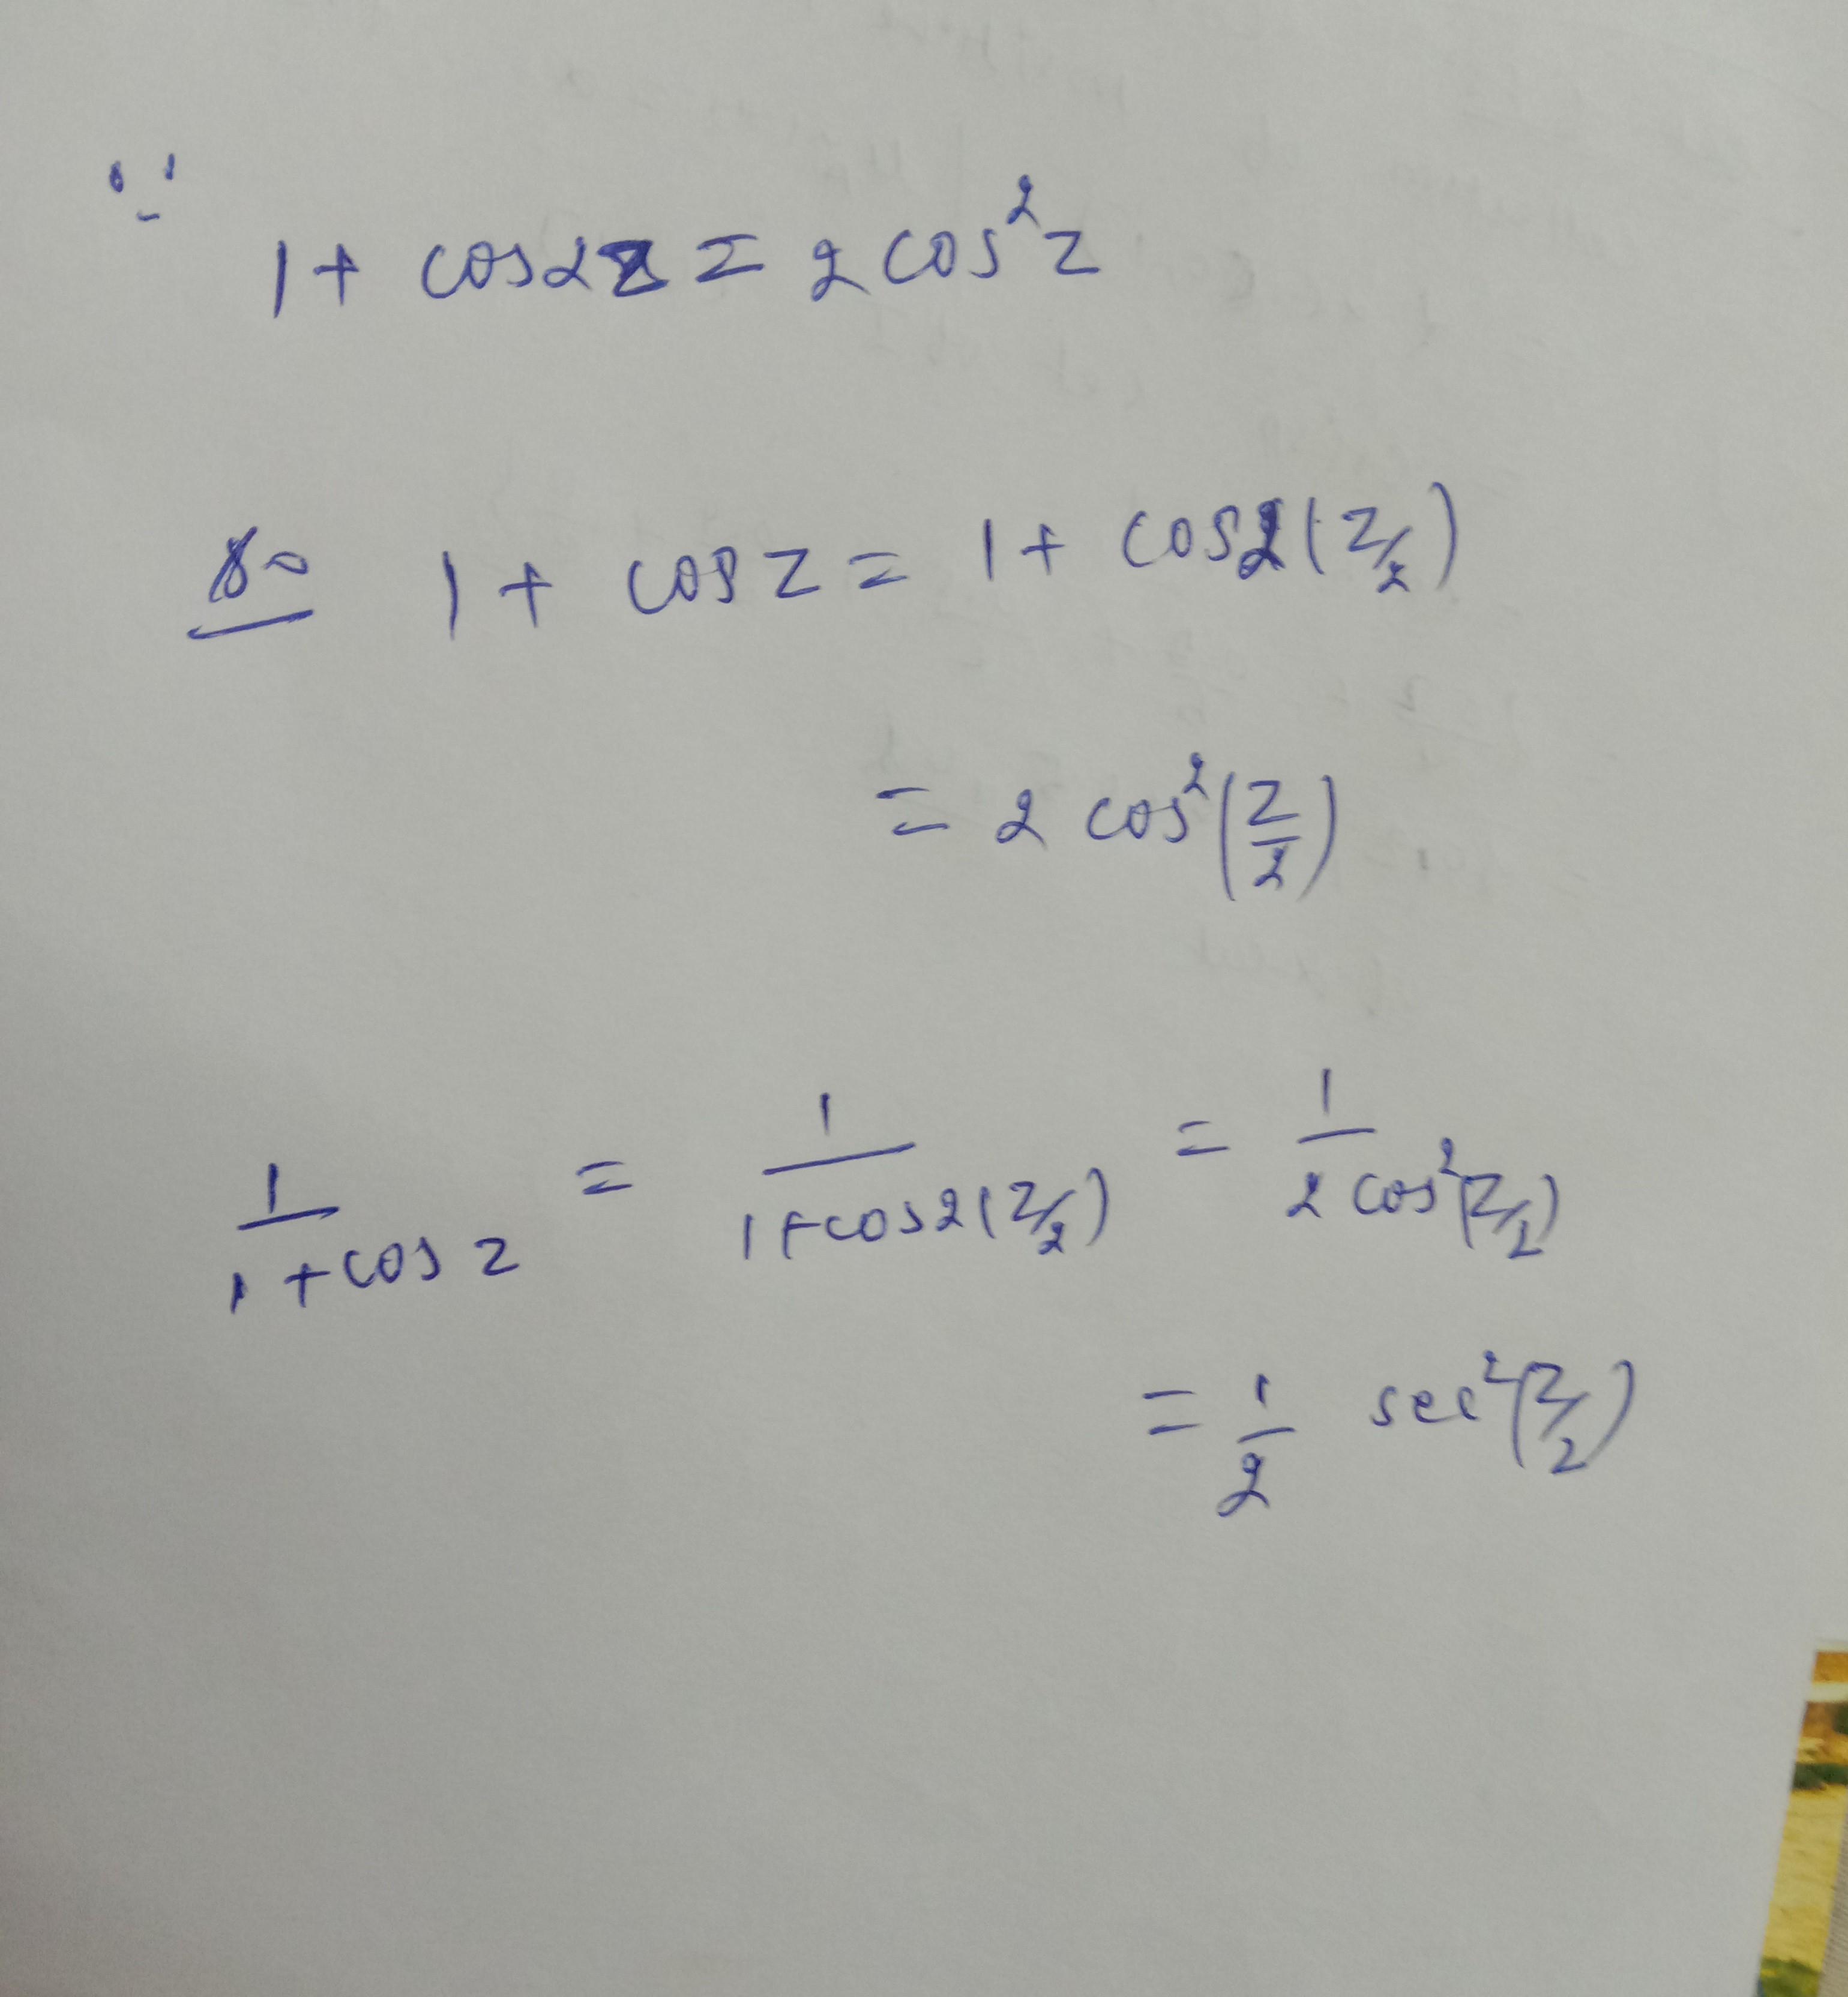 ∵
1 + cos2z = 2 cos²z
So 1 + cos z = 1 + cos2(z/2)
= 2 cos²(z/2)
1/(1+cos z) = 1/(1+cos2(z/2)) = 1/(2 cos²(z/2))
= 1/2 sec²(z/2)